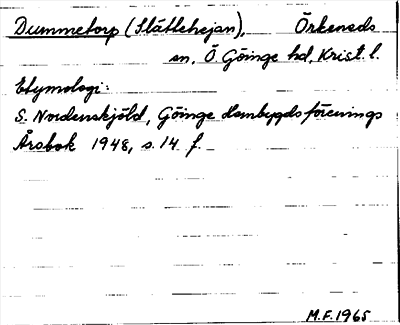 Dummetorp (Slättehejan), Örkeneds
sn, Ö Göinge hd, Krist. l.
Etymologi:
S. Nordenskjöld, Göinge Hembygdsförenings
Årsbok 1948, s. 14 f.
M.F. 1965